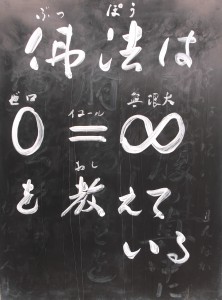 ぶっ ぽう
佛法は
ゼロ イコール 無限大
0=∞
おし
を教えて
いる